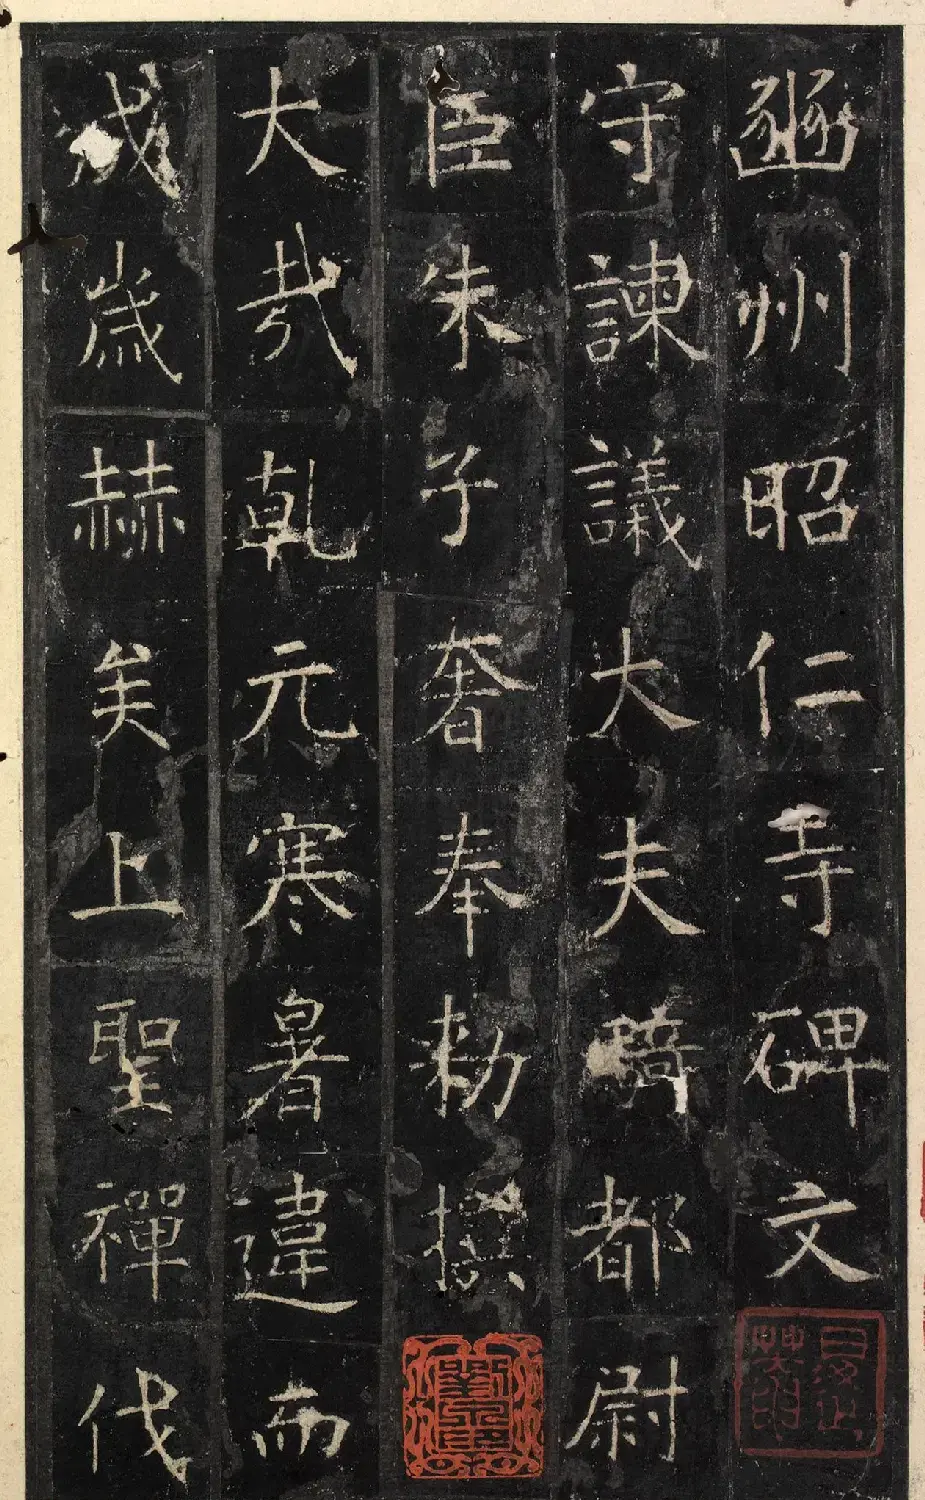 豳州昭仁寺碑文
守諫議大夫騎都尉
臣朱子奢奉勑撰
大哉乾元寒暑違而
成歲赫矣上聖禪伐